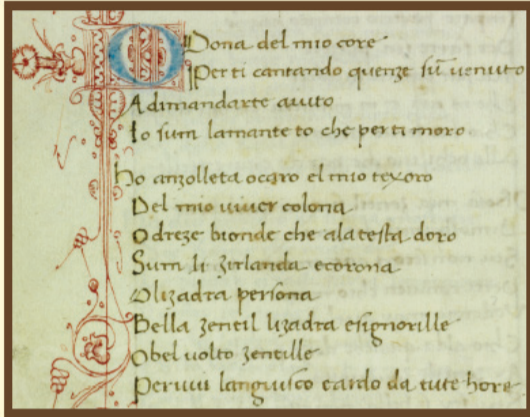 O Dona del mio core
Per ti cantando quenze sū uenuto
Adimandarte aiuto
Io sum lamante to che per ti moro
ho anzolleta o caro el mio texoro
Del mio uiuer colona
O dreze bionde che ala testa doro
Sum li zirlanda e corona
O lizadra persona
Bella zentil lizadra e signorille
O bel uolto zentille
Per uui languisco e ardo da tute hore